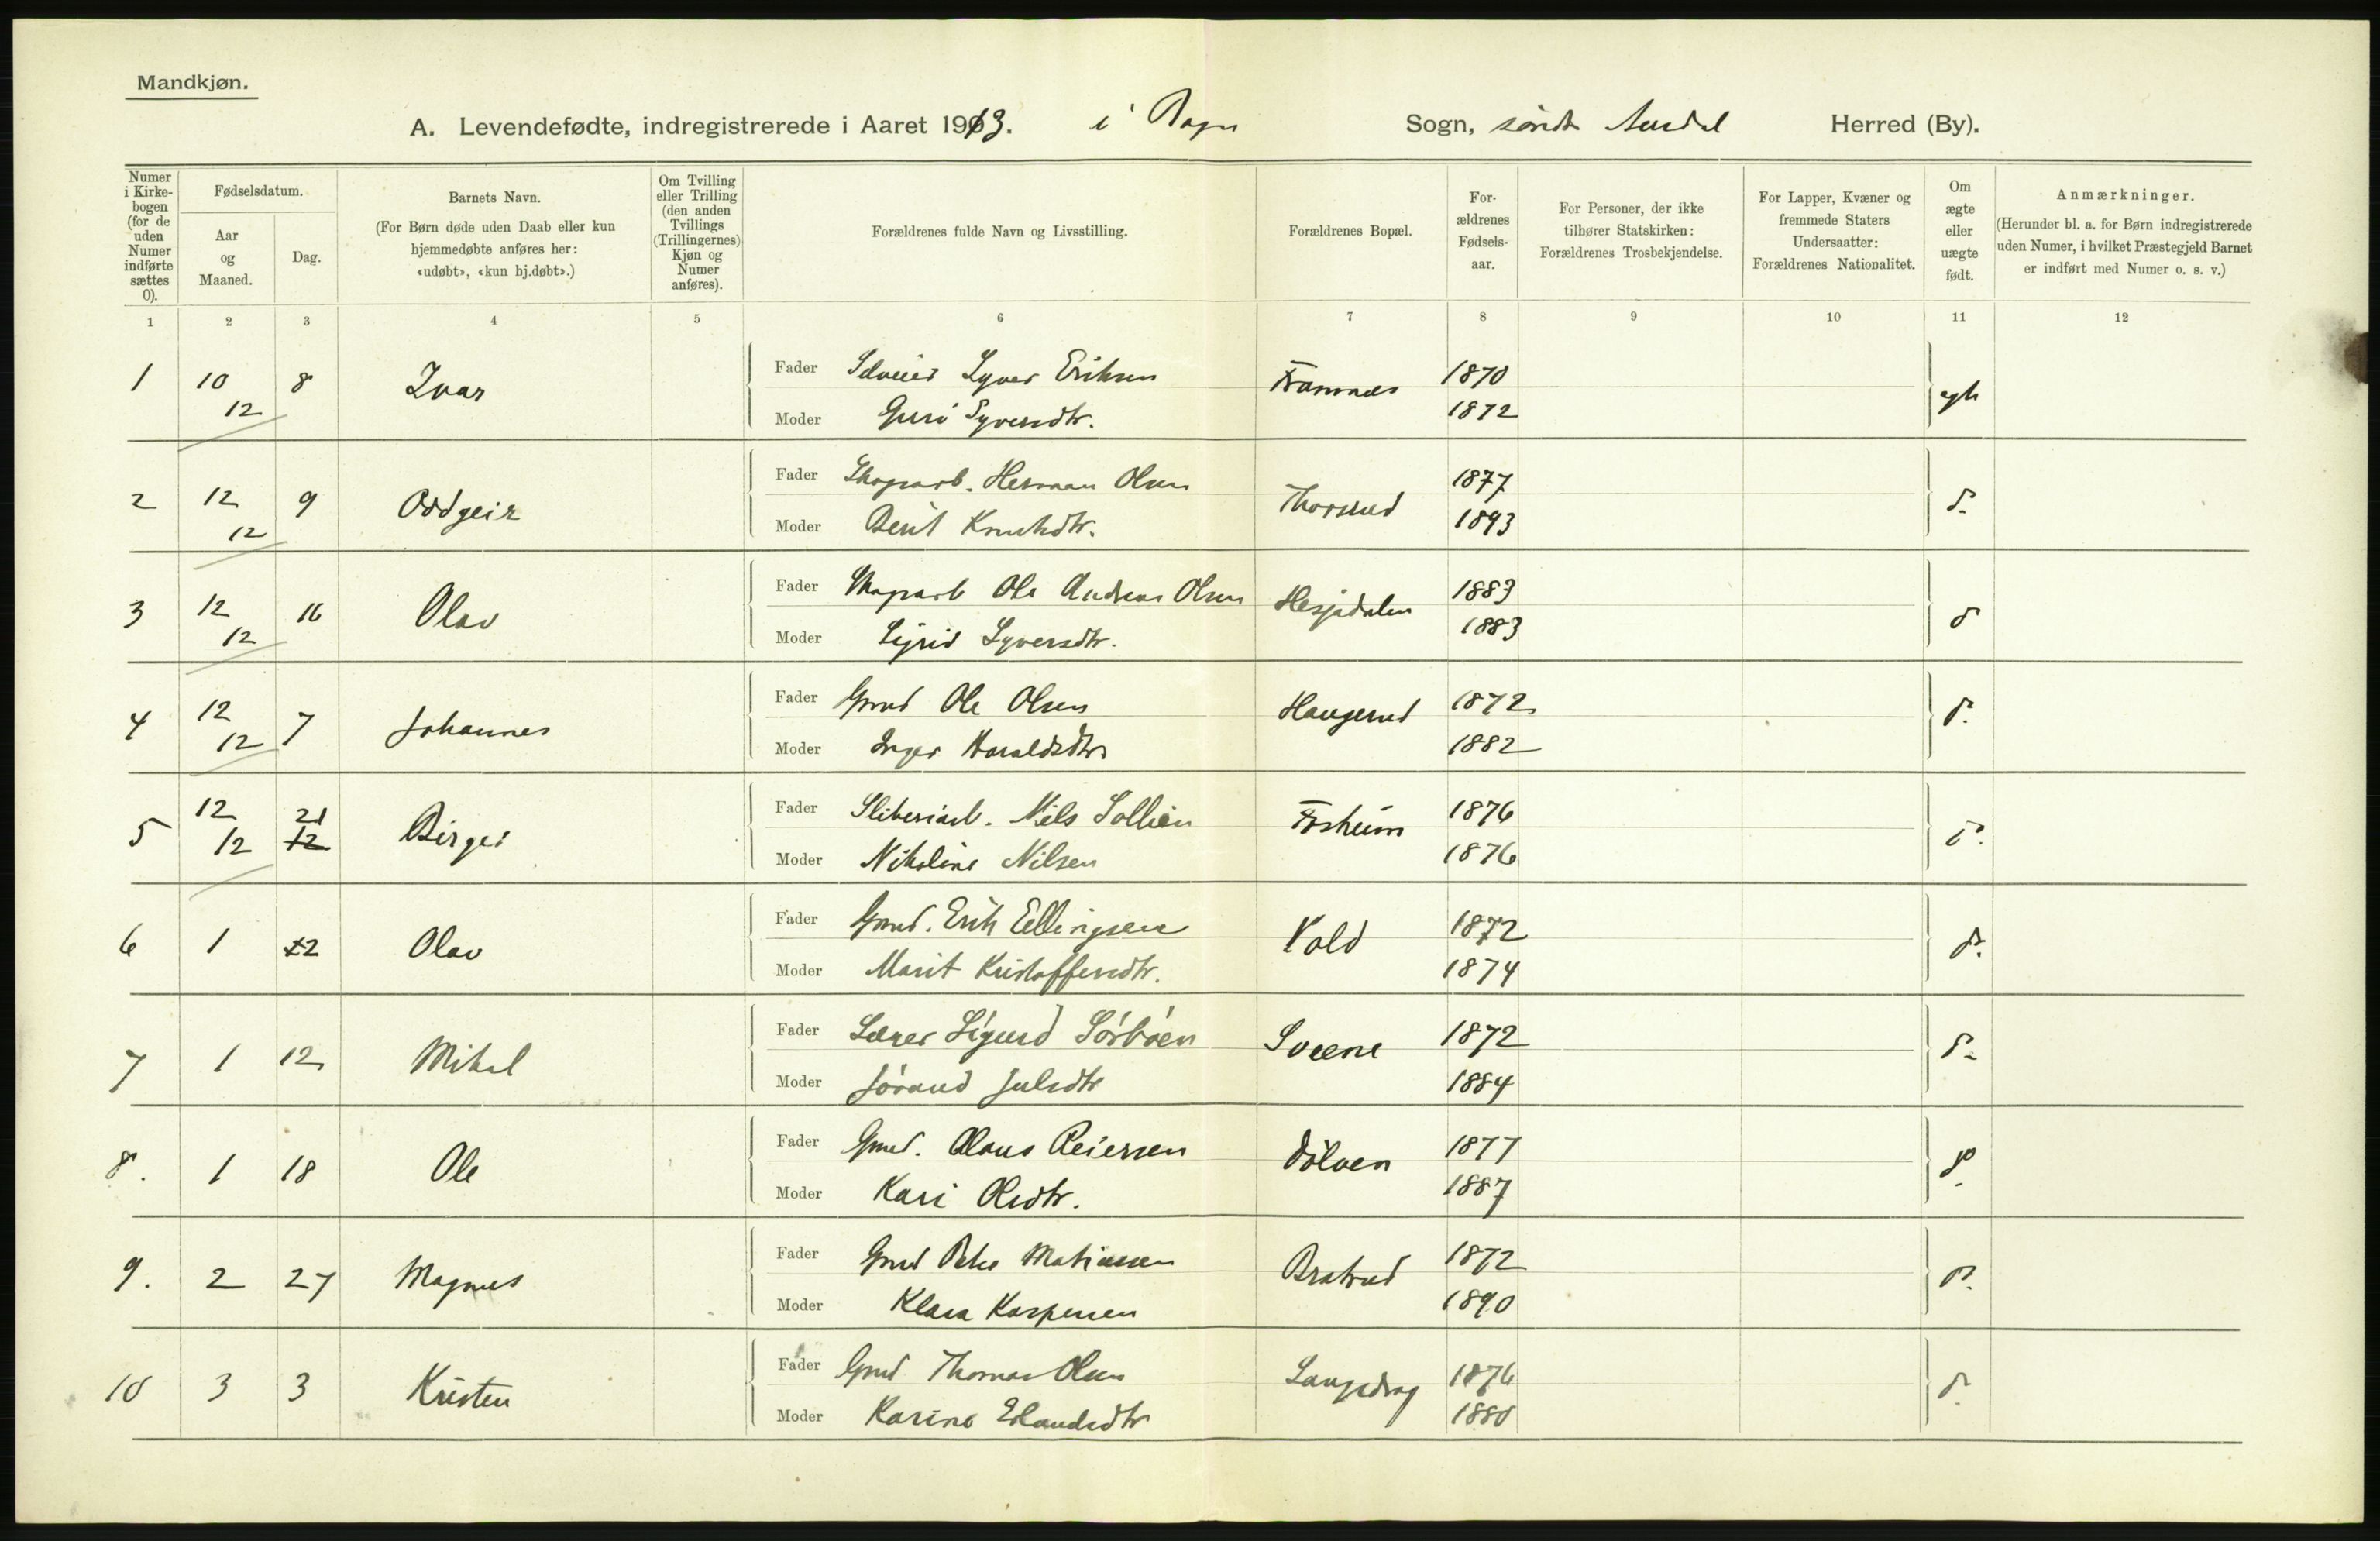 Mandkjøn.
A. Levendefødte, indregistrerede i Aaret 1913. i Bagn Sogn, søndre Aurdal Herred (By).
Numer i Kirkebogen (for de uden Numer indførte sættes 0).
Fødselsdatum.
Aar og Maaned.
Dag.
Barnets Navn.
(For Børn døde uden Daab eller kun hjemmedøbte anføres her: «udøbt», «kun hj.døbt».)
Om Tvilling eller Trilling (den anden Tvillings (Trillingernes) Kjøn og Numer anføres).
Forældrenes fulde Navn og Livsstilling.
Forældrenes Bopæl.
Forældrenes Fødselsaar.
For Personer, der ikke tilhører Statskirken: Forældrenes Trosbekjendelse.
For Lapper, Kvæner og fremmede Staters Undersaatter: Forældrenes Nationalitet.
Om ægte eller uægte født.
Anmærkninger.
(Herunder bl. a. for Børn indregistrerede uden Numer, i hvilket Præstegjeld Barnet er indført med Numer o. s. v.)
1 2 3 4 5 6 7 8 9 10 11 12
1 10/12 8 Ivar Fader Selveier Syver Eriksen Framnes 1870 egte
Moder Guri Syversdtr. 1872
2 12/12 9 Oddgeir Fader Skogsarb. Herman Olsen Thorsrud 1877 do
Moder Berit Knutsdtr. 1893
3 12/12 16 Olav Fader Skogsarb Ole Andreas Olsen Hesjadalen 1883 do
Moder Sigrid Syversdtr. 1883
4 12/12 7 Johannes Fader Grmd Ole Olsen Haugerud 1872 do
Moder Inger Haraldsdtr 1882
5 12/12 21 12 Birger Fader Sliberiarb. Nils Sollien Fosheim 1876 do
Moder Nikoline Nilsen 1876
6 1 12 Olav Fader Grmd. Erik Ellingsen Vold 1872 do
Moder Marit Kristoffersdtr. 1874
7 1 12 Mikal Fader Lærer Sigurd Sørbøen Sveene 1872 do
Moder Jørand Julsdtr 1884
8. 1 18 Ole Fader Grmd. Olaus Reiersen Dølven 1877 do
Moder Kari Olsdtr. 1887
9. 2 27 Magnus Fader Grmd Peder Matiassen Bratrud 1872 do
Moder Klara Kaspersen 1890
10 3 3 Kristen Fader Grmd Thomas Olsen Langedrag 1876 do
Moder Karine Erlandsdtr 1880